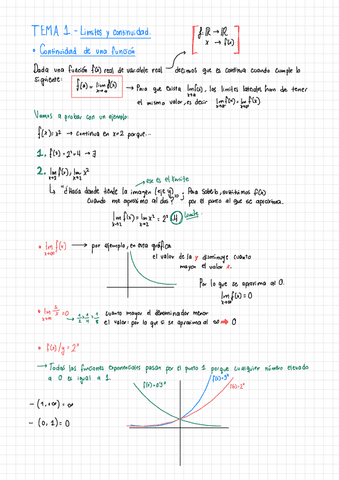 TEMA 1 - Límites y continuidad.
• Continuidad de una función
f: ℝ → ℝ
x → f(x)
Dada una función f(x) real de variable real → decimos que es continua cuando cumple lo
siguiente:
f(a) = lim x→a f(x)
→ Para que exista lim x→a f(x), los límites laterales han de tener
el mismo valor, es decir
Vamos a probar con un ejemplo:
f(x) = x² → continua en x=2 porque...
1. f(2) = 2² = 4 → ∃
2. lim x→2 f(x); lim x→2 x²
ese es el límite
→ "¿Hacia donde tiende la imagen (eje y)
cuando me aproximo al dos?"
Para saberlo, sustituimos f(x)
por el punto al que se aproxima.
lim x→2 f(x) = lim x→2 x² = 2² = 4 límite
• lim x→∞ f(x) → por ejemplo, en esta gráfica
el valor de la y disminuye cuanto
mayor el valor x.
Por lo que se aproxima al 0.
lim x→∞ f(x) = 0
cuanto mayor el denominador menor
el valor: por lo que si se aproxima al ∞ → 0
• f(x)/y = 2ˣ
→ Todas las funciones exponenciales pasan por el punto 1 porque cualquier número elevado
a 0 es igual a 1.
f(x) = 3ˣ
f(x) = 2ˣ
- (1, +∞) = ∞
- (0, 1) = 0